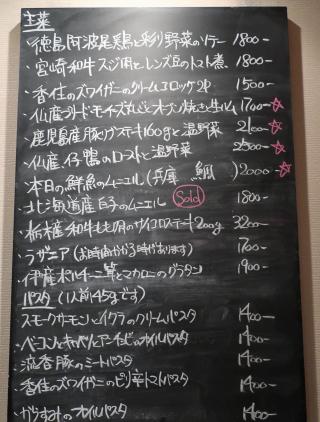 主菜
・徳島阿波尾鶏と彩り野菜のソテー 1800-
・宮崎和牛スジ肉とレンズ豆のトマト煮 1800-
・香住のズワイガニのクリームコロッケ2P 1500-
・仏産 オーブン焼きと生ハム 1700-☆
・鹿児島産豚 ステーキ160gと温野菜 2100-☆
・仏産仔鴨のローストと温野菜 2500-☆
・本日の鮮魚のムニエル(兵庫 鯛 )2000-☆
・北海道産白子のムニエル Sold 1800-
・栃木和牛もも肉のサイコロステーキ200g 3200-
・ラザニア(お時間かかる時が有ります) 1700-
・伊産ポルチーニ茸とマカロニのグラタン 1900-
パスタ (1人前145gです)
・スモークサーモンとイクラのクリームパスタ 1400-
・ベーコンとキャベツとアンチョビのオイルパスタ 1400-
・流香豚のミートパスタ 1400-
・香住のズワイガニのピリ辛トマトパスタ 1400-
・からすみのオイルパスタ 1400-